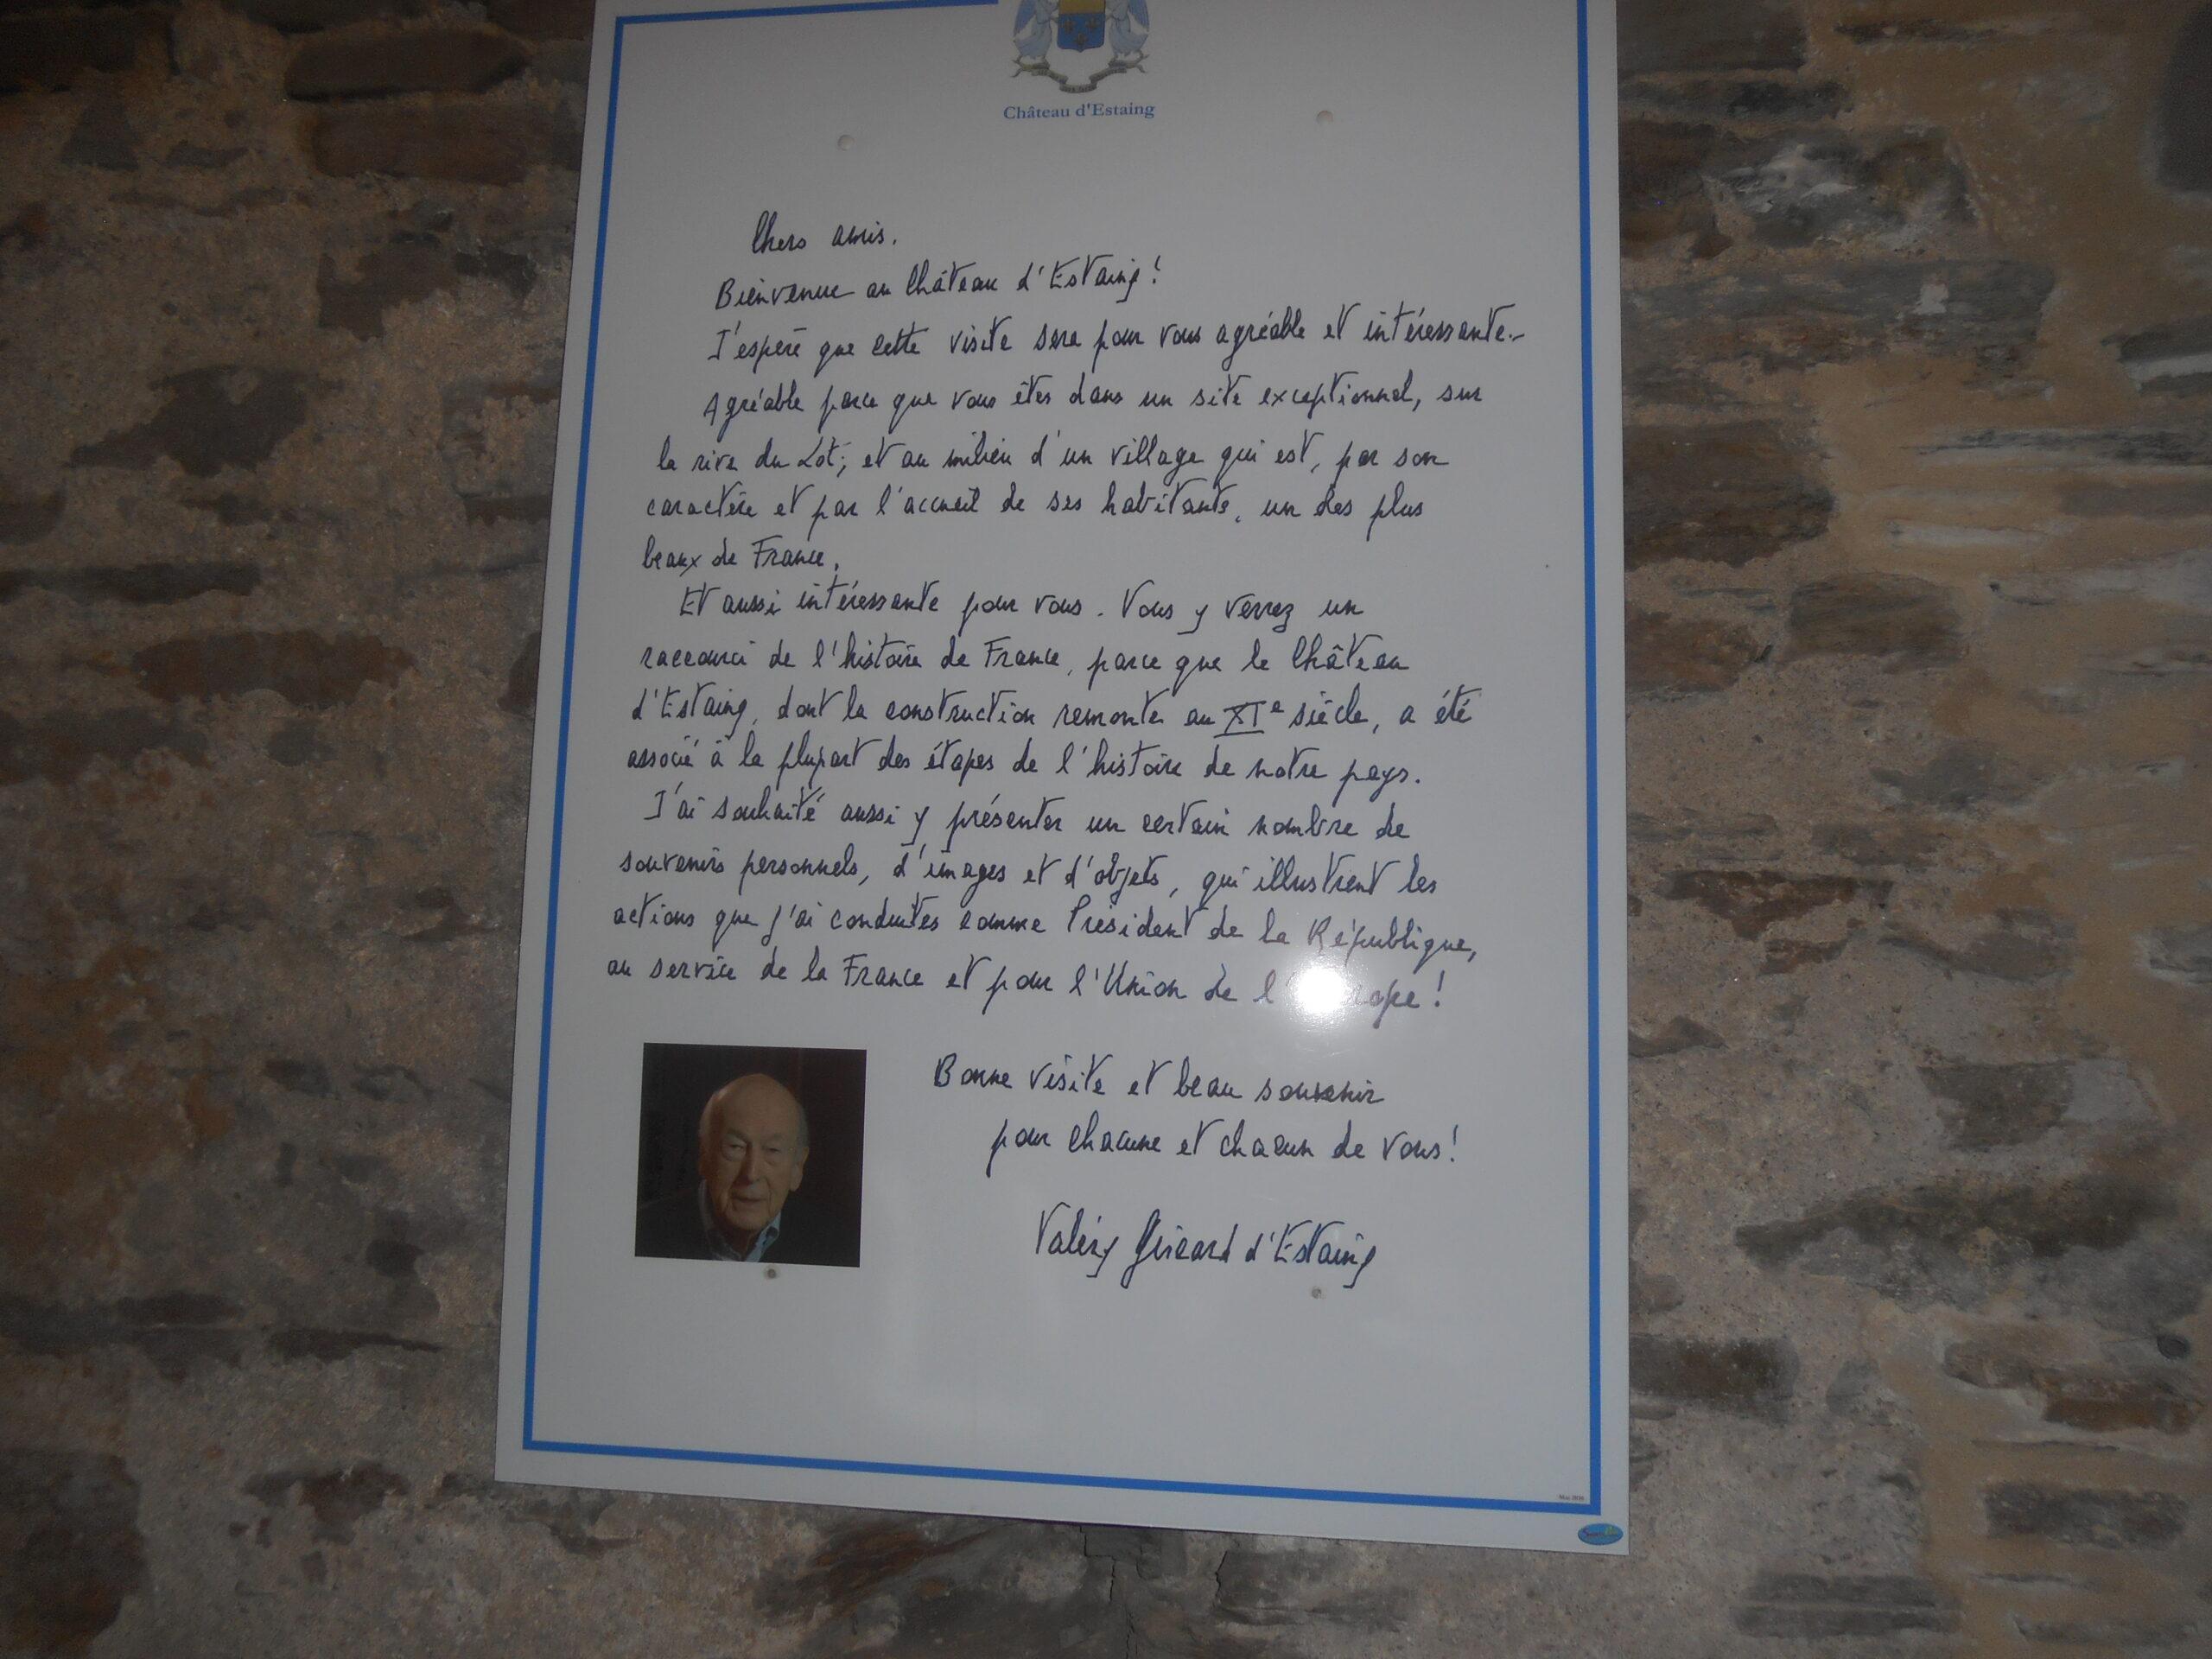 Château d'Estaing
Chers amis.
Bienvenue au Château d'Estaing !
J'espère que cette visite sera pour vous agréable et intéressante.-
Agréable parce que vous êtes dans un site exceptionnel, sur
la rive du Lot; et au milieu d'un village qui est, par son
caractère et par l'accueil de ses habitants, un des plus
beaux de France.
Et aussi intéressante pour vous. Vous y verrez un
raccourci de l'histoire de France, parce que le Château
d'Estaing, dont la construction remonte au XIe siècle, a été
associé à la plupart des étapes de l'histoire de notre pays.
J'ai souhaité aussi y présenter un certain nombre de
souvenirs personnels, d'images et d'objets, qui illustrent les
actions que j'ai conduites comme Président de la République,
au service de la France et pour l'Union de l'Europe !
Bonne visite et beau souvenir
pour chacune et chacun de vous !
Valéry Giscard d'Estaing